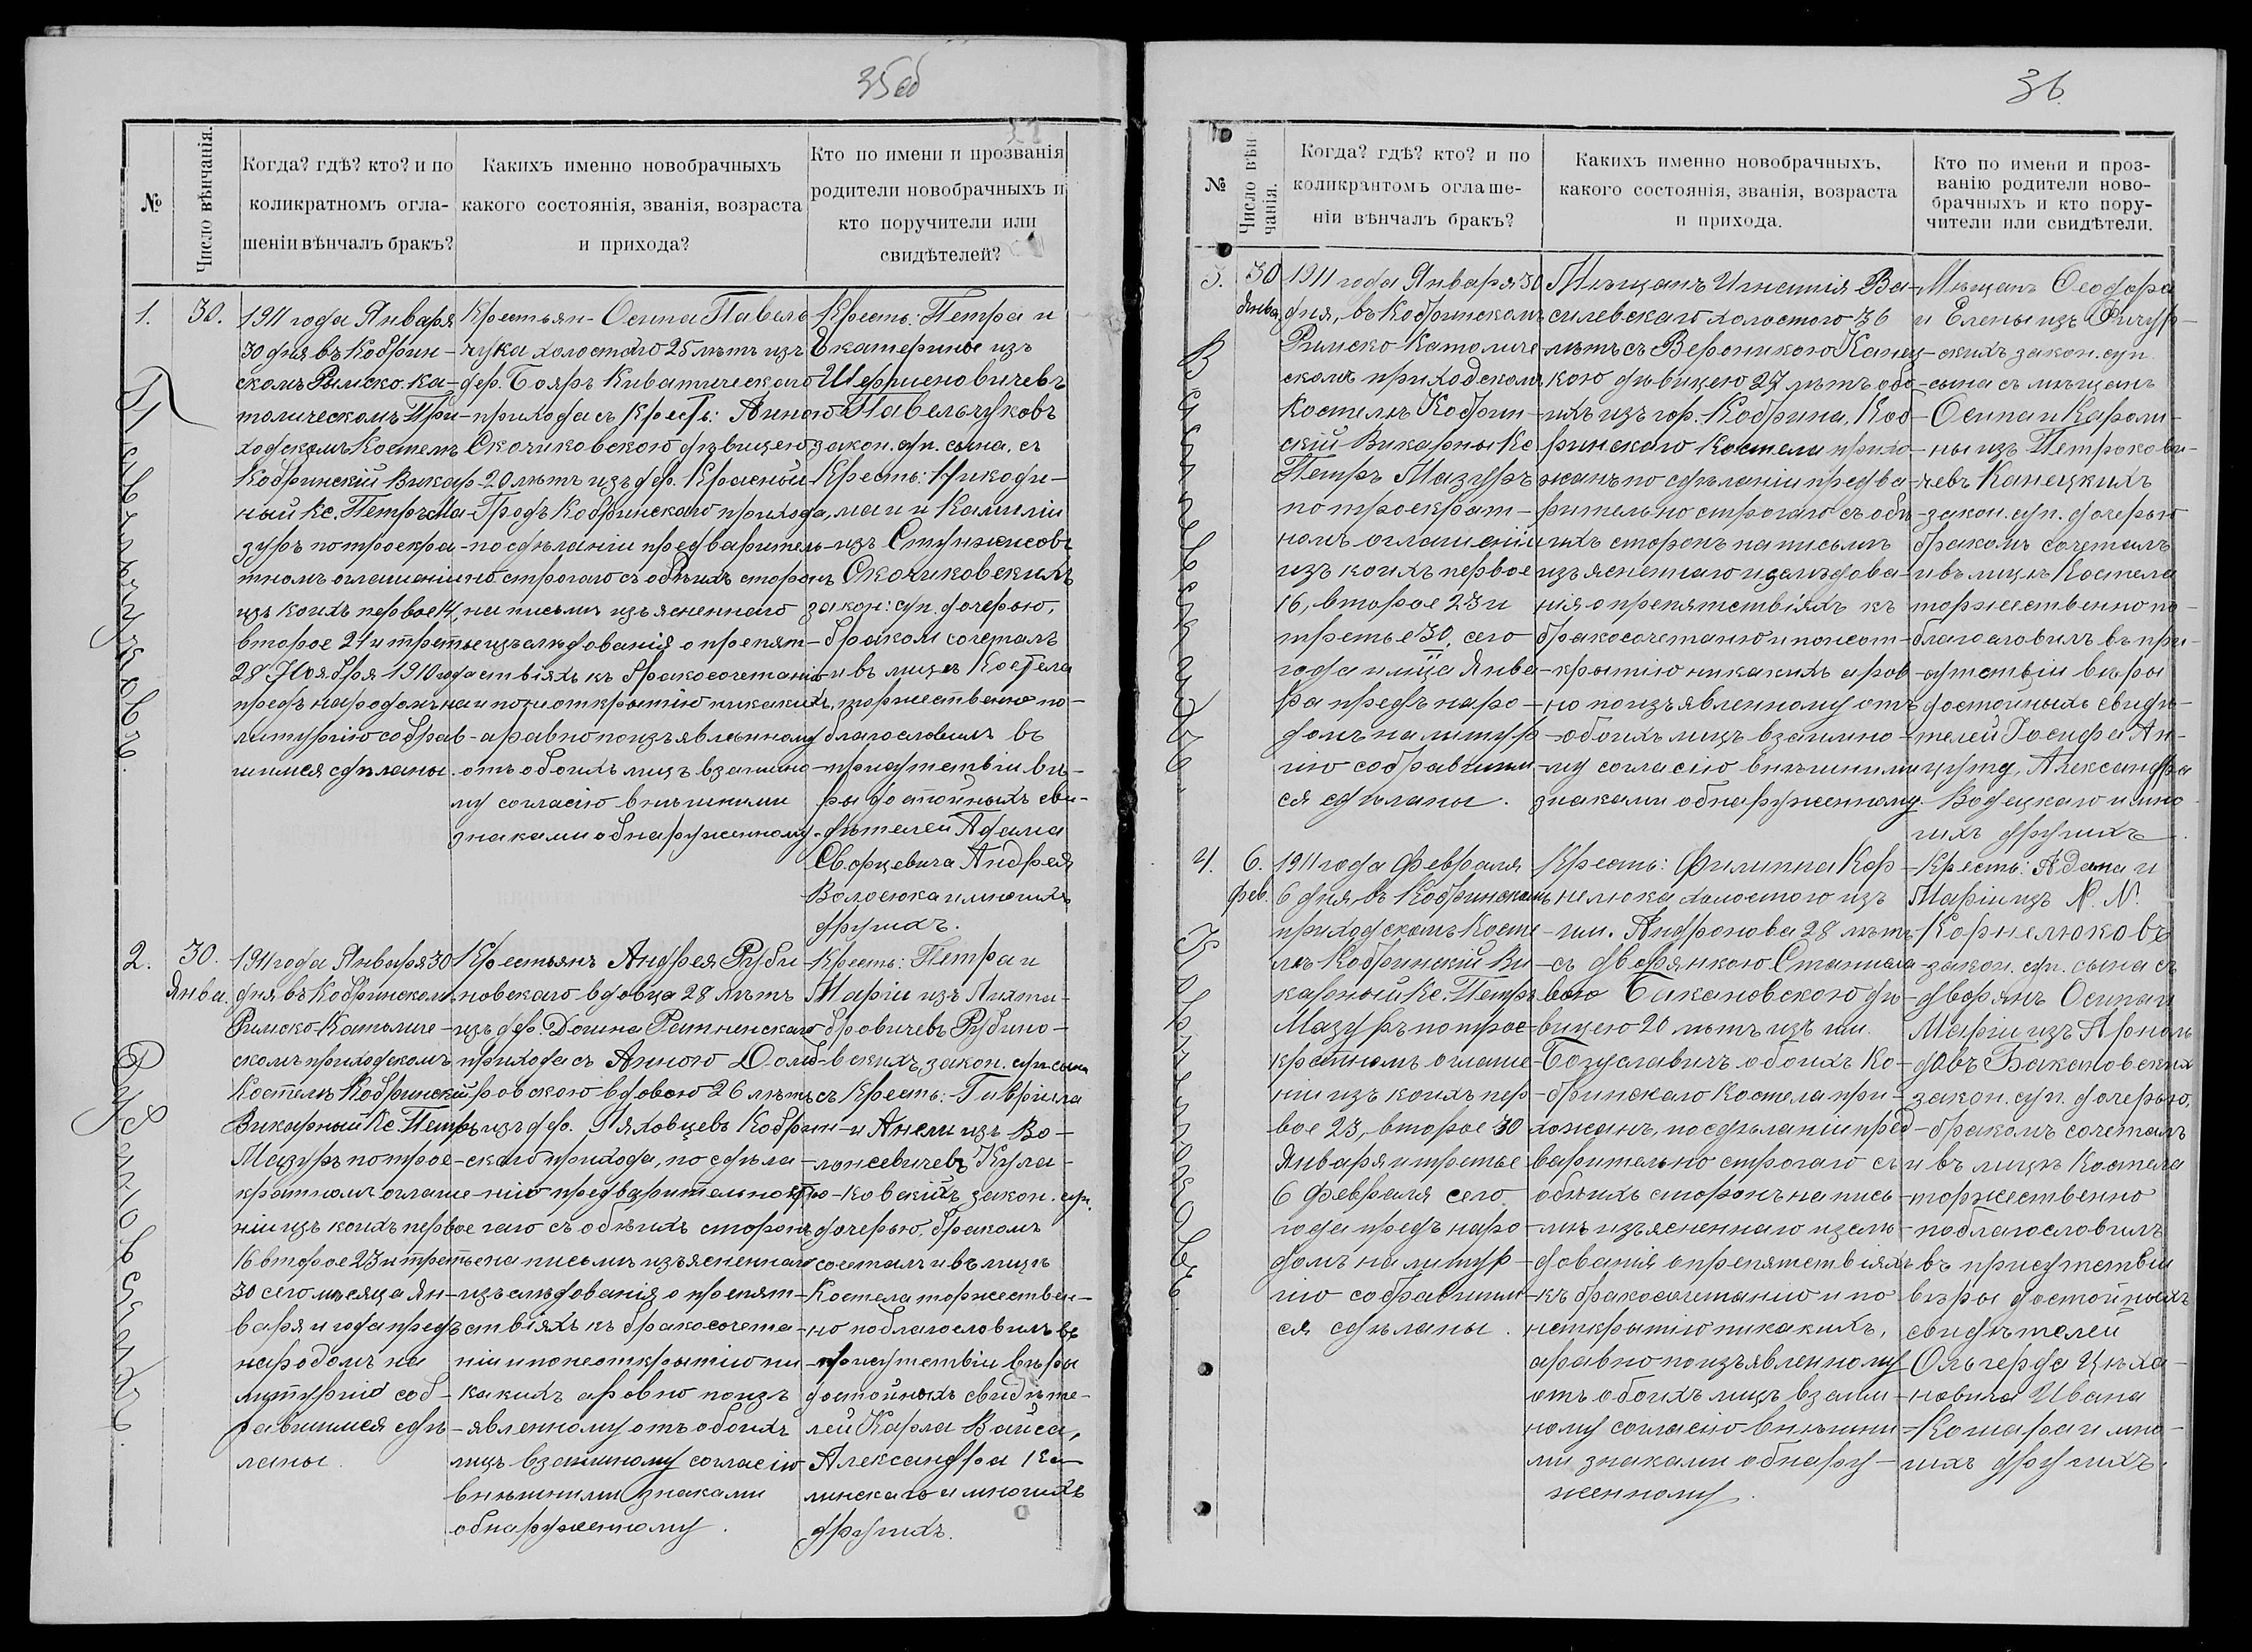 35об
№
Число вѣнчанія.
Когда? гдѣ? кто? и по
коликратномъ огла-
шеніи вѣнчалъ бракъ?
Какихъ именно новобрачныхъ
какого состоянія, званія, возраста
и прихода?
Кто по имени и прозванія
родители новобрачныхъ и
кто поручители или
свидѣтелей?
1.
30.
Павельчуковъ.
1911 года Января
30 дня въ Кобрин-
скомъ Римско-ка-
толическомъ При-
ходскомъ Костелѣ
Кобринскій Викар-
ный Кс. Петръ Ма-
зуръ по троекра-
тномъ оглашеніи
изъ коихъ первое 14,
второе 21 и третье
28 Ноября 1910 года
предъ народомъ на
литургію собрав-
шимся сдѣланы.
Крестьян- Осипа Павель-
чука холостаго 25 лѣтъ изъ
дер. Бояръ Киватическаго
прихода съ Крест: Анною
Скочиковскою дѣвицею
20 лѣтъ изъ дер. Красный
Гродъ Кобринскаго прихода,
по сдѣланіи предваритель-
но строгаго съ обѣихъ сторонъ
на письмѣ изъясненнаго
изслѣдованія о препят-
ствіяхъ къ бракосочетанію
и по неоткрытію никакихъ,
а равно по изъявленному
отъ обоихъ лицъ взаимно-
му согласію внѣшними
знаками обнаруженному.
Крест: Петра и
Екатерины изъ
Шершеновичевъ
Павельчуковъ
закон. суп. сына, съ
Крест: Никоди-
ма и Камиліи
изъ Стрижисовъ
Скочиковскихъ
закон: суп. дочерью,
бракомъ сочеталъ
и въ лицѣ Костела
торжественно по-
благословилъ въ
присутствіи вѣ-
ры достойныхъ сви-
дѣтелей Адама
Сворцевича Андрея
Волосюка и многихъ
другихъ.
2.
30.
Янва.
Рубиновскихъ.
1911 года Января 30
дня въ Кобринскомъ
Римско-Католиче-
скомъ приходскомъ
Костелѣ Кобринскій
Викарный Кс. Петръ
Мазуръ по трое-
кратномъ оглаше-
ніи изъ коихъ первое
16 второе 23 и третье
30 сего мѣсяца Ян-
варя и года предъ
народомъ на
литургію соб-
равшимся сдѣ-
ланы.
Крестьянъ Андрея Руби-
новскаго вдовца 28 лѣтъ
изъ дер. Долина Ратненскаго
прихода съ Анною Домб-
ровскою вдовою 26 лѣтъ
изъ дер. Ляховцевъ Кобрин-
скаго прихода, по сдѣла-
нію предварительно стро-
гаго съ обѣихъ сторонъ
на письмѣ изъясненнаго
изслѣдованія о препят-
ствіяхъ къ бракосочета-
нію и по неоткрытію ни-
какихъ а равно по изъ-
явленному отъ обоихъ
лицъ взаимному согласію
внѣшними знаками
обнаруженному.
Крест: Петра и
Маріи изъ Лихта-
ровичевъ Рубино-
вскихъ, закон. суп. сына
съ Крест: Гавріила
и Анели изъ Во-
лонсевичевъ Кула-
ковскихъ закон. суп.
дочерью, бракомъ
сочеталъ и въ лицѣ
Костела торжествен-
но поблагословилъ въ
присутствіи вѣры
достойныхъ свидѣте-
лей Карла Вайса,
Александра Ка-
линскаго и многихъ
другихъ.
36.
№
Число вѣн
чанія.
Когда? гдѣ? кто? и по
коликрантомъ оглаше-
ніи вѣнчалъ бракъ?
Какихъ именно новобрачныхъ,
какого состоянія, званія, возраста
и прихода.
Кто по имени и проз-
ванію родители ново-
брачныхъ и кто пору-
чители или свидѣтели.
3.
30
Янва.
Василевскихъ.
1911 года Января 30
дня, въ Кобринскомъ
Римско Католиче-
скомъ приходскомъ
Костелѣ Кобрин-
скій Викарный Кс.
Петръ Мазуръ
по троекрат-
номъ оглашеніи
изъ коихъ первое
16, второе 23 и
третье 30 сего
года и м-ца Янва-
ра предъ наро-
домъ на литур-
гію собравшим-
ся сдѣланы.
Мѣщанъ Игнатія Ва-
силевскаго холостого 36
лѣтъ съ Вероникою Канец-
кою дѣвицею 27 лѣтъ обо-
ихъ изъ гор. Кобрина, Коб-
ринскаго Костела прихо-
жанъ по сдѣланіи предва-
рительно строгаго съ обѣ-
ихъ сторонъ на письмѣ
изъясненнаго изслѣдова-
нія о препятствіяхъ къ
бракосочетанію и по неот-
крытію никакихъ а рав-
но по изъявленному отъ
обоихъ лицъ взаимно-
му согласію внѣшними
знаками обнаруженному.
Мѣщанъ Ѳеодора
и Елены изъ
закон. суп.
сына съ мѣщанъ
Осипа и Кароли-
ны изъ Петрокови-
чевъ Канецкихъ
закон. суп. дочерью
бракомъ сочеталъ
и въ лицѣ Костела
торжественно по-
благословилъ въ при-
сутствіи вѣры
достойныхъ свидѣ-
телей Іосифа Ан-
цута, Александра
Водецкаго и мно-
гихъ другихъ.
4.
6.
Фев.
Корнелюковъ.
1911 года Февраля
6 дня, въ Кобринскомъ
приходскомъ Косте-
лѣ Кобринскій Ви-
карный Кс. Петръ
Мазуръ по трое-
кратномъ оглаше-
ніи изъ коихъ пер-
вое 23, второе 30
Января и третье
6 Февраля сего
года предъ наро-
домъ на литур-
гію собравшим-
ся сдѣланы.
Крест: Филиппа Кор-
нелюка холостого изъ
им. Андронова 28 лѣтъ
съ дворянкою Станисла-
вою Бакановскою дѣ-
вицею 20 лѣтъ изъ им.
Богуславичъ обоихъ Ко-
бринскаго Костела при-
хожанъ, по сдѣланіи пред-
варительно строгаго съ
обѣихъ сторонъ на пись-
мѣ изъясненнаго изслѣ-
дованія о препятствіяхъ
къ бракосочетанію и по
неоткрытію никакихъ,
а равно по изъявленному
отъ обоихъ лицъ взаим-
ному согласію внѣшни-
ми знаками обнару-
женному.
Крест: Адама и
Маріи изъ N. N.
Корнелюковъ
закон. суп. сына съ
дворянъ Осипа и
Маріи изъ Арноль-
довъ Бакановскихъ
закон. суп. дочерью,
бракомъ сочеталъ
и въ лицѣ Костела
торжественно
поблагословилъ
въ присутствіи
вѣры достойныхъ
свидѣтелей
Ольгерда Цѣха-
новича Ивана
Комара и мно-
гихъ другихъ.